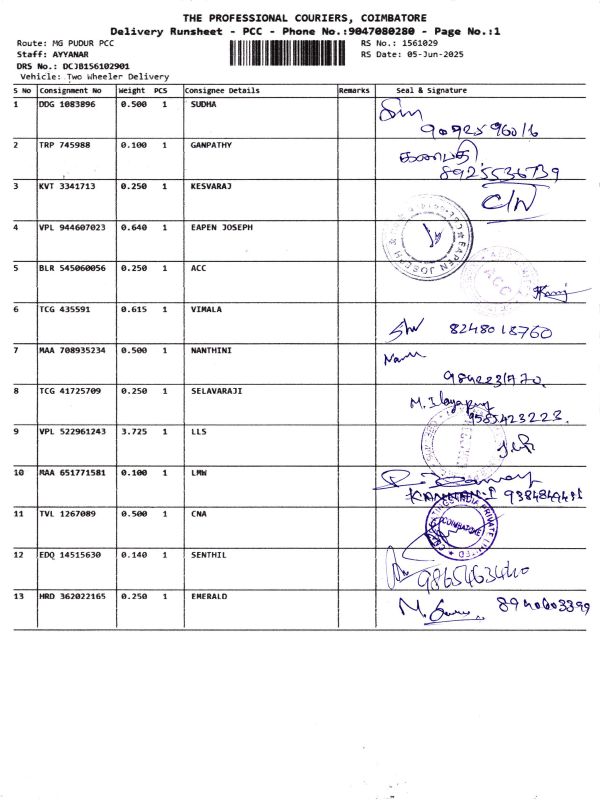 THE PROFESSIONAL COURIERS, COIMBATORE
Delivery Runsheet - PCC - Phone No.:9047080280 - Page No.:1
Route: MG PUDUR PCC RS No.: 1561029
Staff: AYYANAR RS Date: 05-Jun-2025
DRS No.: DCJB156102901
Vehicle: Two Wheeler Delivery
S No Consignment No Weight PCS Consignee Details Remarks Seal & Signature
1 DDG 1083896 0.500 1 SUDHA
2 TRP 745988 0.100 1 GANPATHY கணபதி
8925536739
3 KVT 3341713 0.250 1 KESVARAJ C/N
4 VPL 944607023 0.640 1 EAPEN JOSEPH EAPEN JOSEPH
5 BLR 545060056 0.250 1 ACC ACC
6 TCG 435591 0.615 1 VIMALA 8248018760
7 MAA 708935234 0.500 1 NANTHINI
8 TCG 41725709 0.250 1 SELAVARAJI
9585423223
9 VPL 522961243 3.725 1 LLS
10 MAA 651771581 0.100 1 LMW
KANNAN.P
11 TVL 1267089 0.500 1 CNA INDIA PRIVATE LIMITED COIMBATORE
12 EDQ 14515630 0.140 1 SENTHIL 9865463440
13 HRD 362022165 0.250 1 EMERALD 8940603399